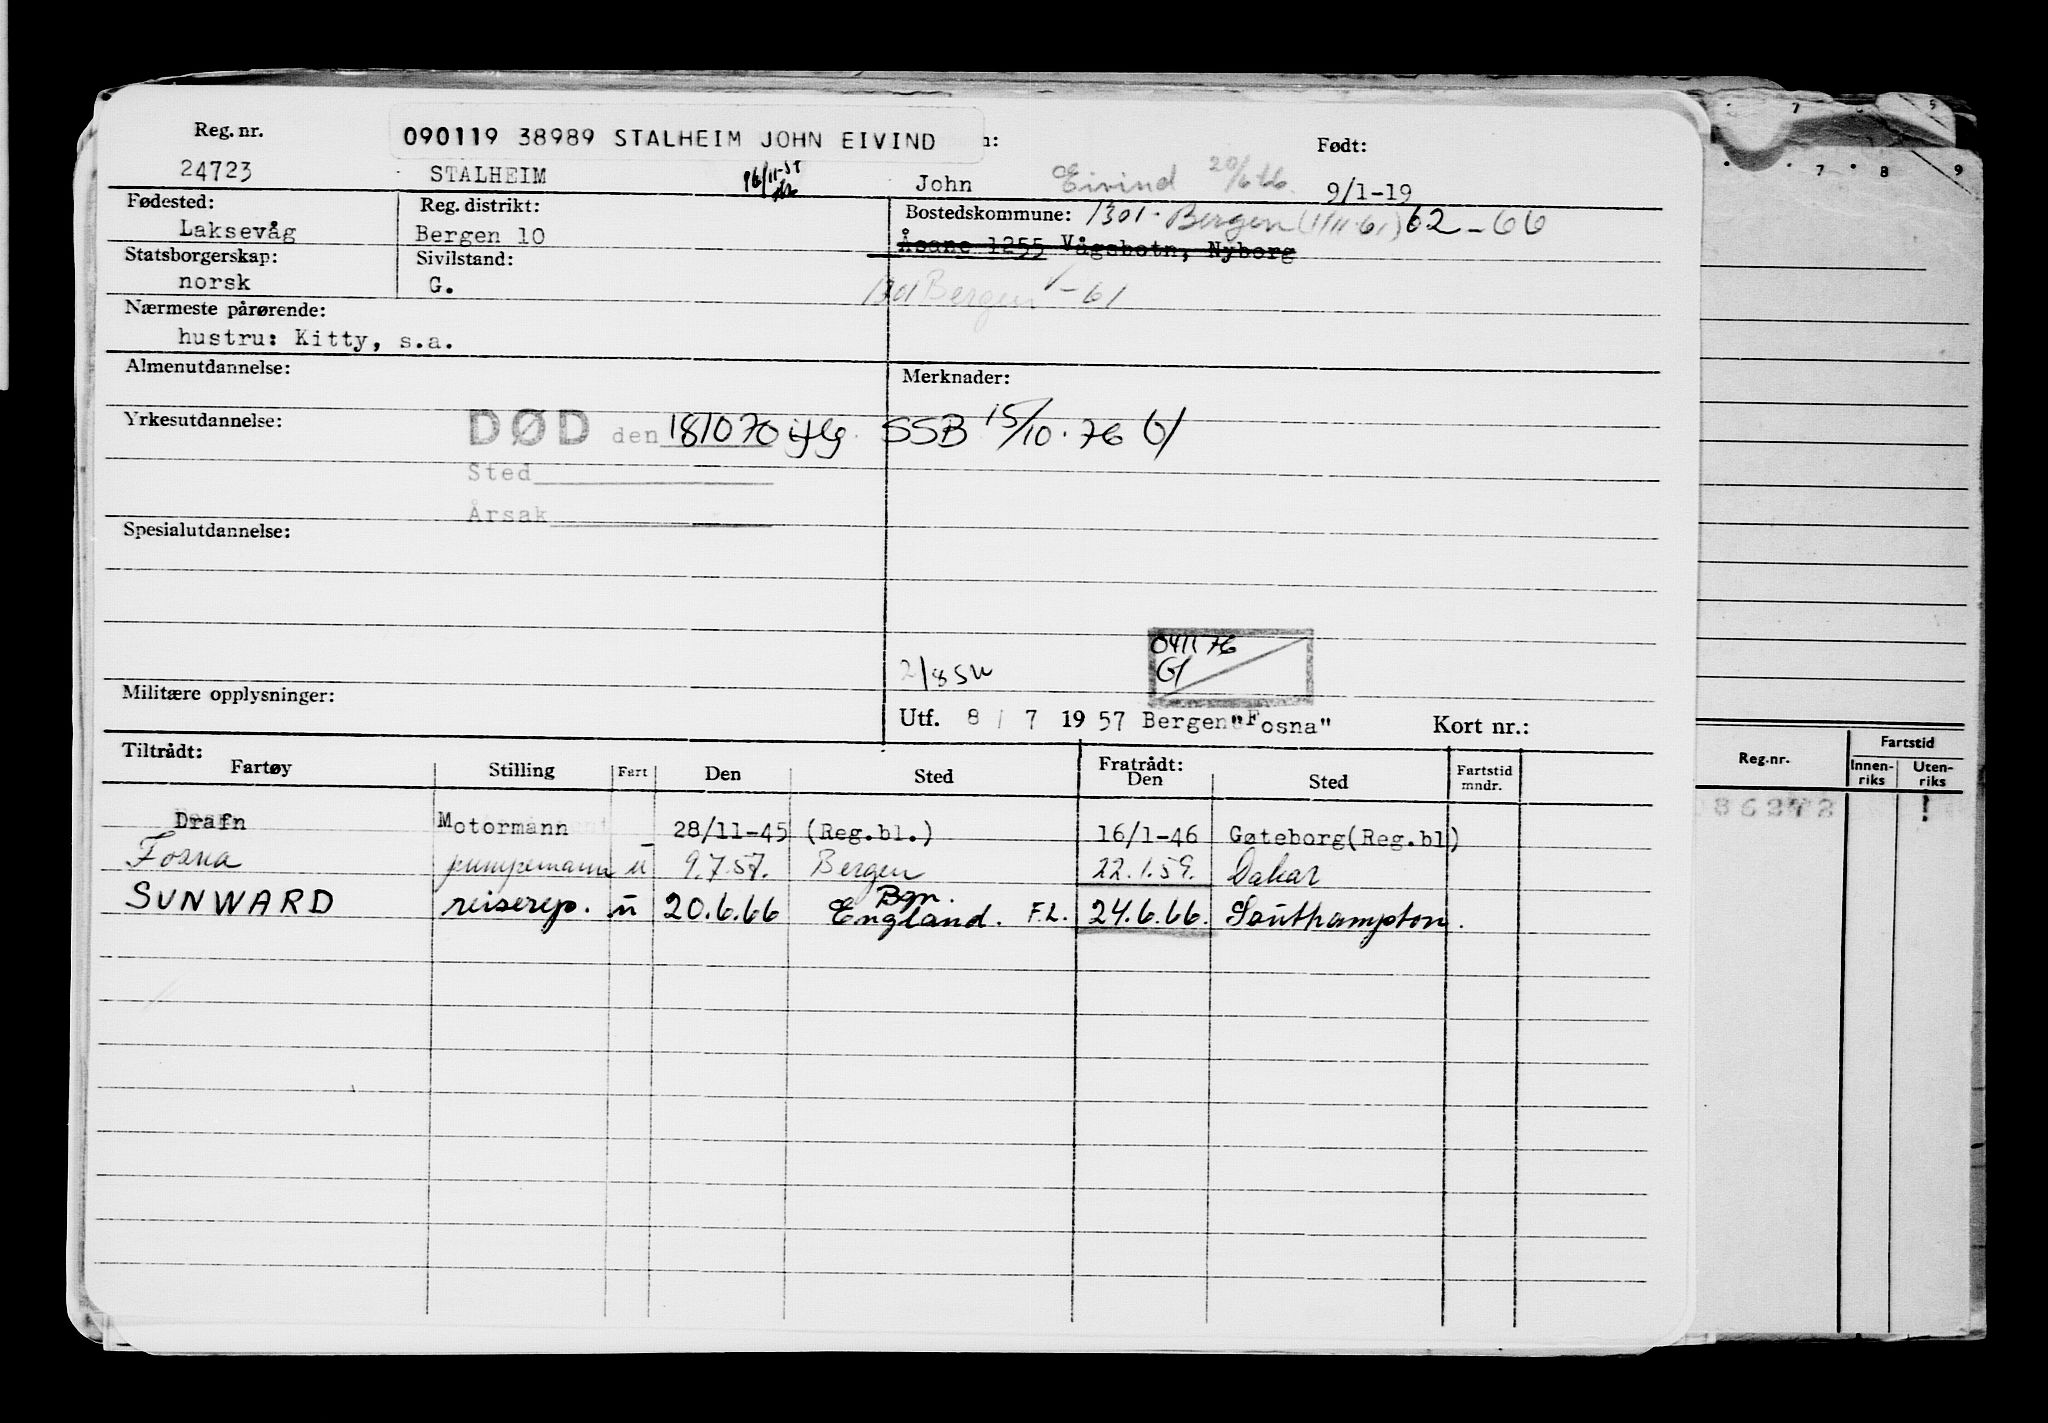 Reg. nr.
090119 38989 STALHEIM JOHN EIVIND
n:
Født:
24723
STALHEIM
John Eivind 20/6 66.
9/1-19
Fødested:
Reg. distrikt:
Bostedskommune: 1301. Bergen (1/11-61) 62-66
Laksevåg
Bergen 10
Åsane 1255 Vågsbotn, Nyborg
Statsborgerskap:
Sivilstand:
norsk
G.
1301 Bergen 1/-61
Nærmeste pårørende:
hustru: Kitty, s.a.
Almenutdannelse:
Merknader:
Yrkesutdannelse:
DØD den 181070 iflg. SSB 15/10.76
Sted
Årsak
Spesialutdannelse:
041176
2/8 SW
Militære opplysninger:
Utf. 8 / 7 1957 Bergen "Fosna"
Kort nr.:
Tiltrådt:
Fratrådt:
Fartøy Stilling Fart Den Sted Den Sted Fartstid mndr.
Drafn Motormann 28/11-45 (Reg.bl.) 16/1-46 Gøteborg(Reg.bl)
Fosna pumpemann u 9.7.57. Bergen 22.1.59. Dakar
Bgn.
SUNWARD reiserep. u 20.6.66 England. F.L. 24.6.66. Southampton.
7 9
7 8 9
Reg.nr.
Fartstid
Innen-riks
Uten-riks